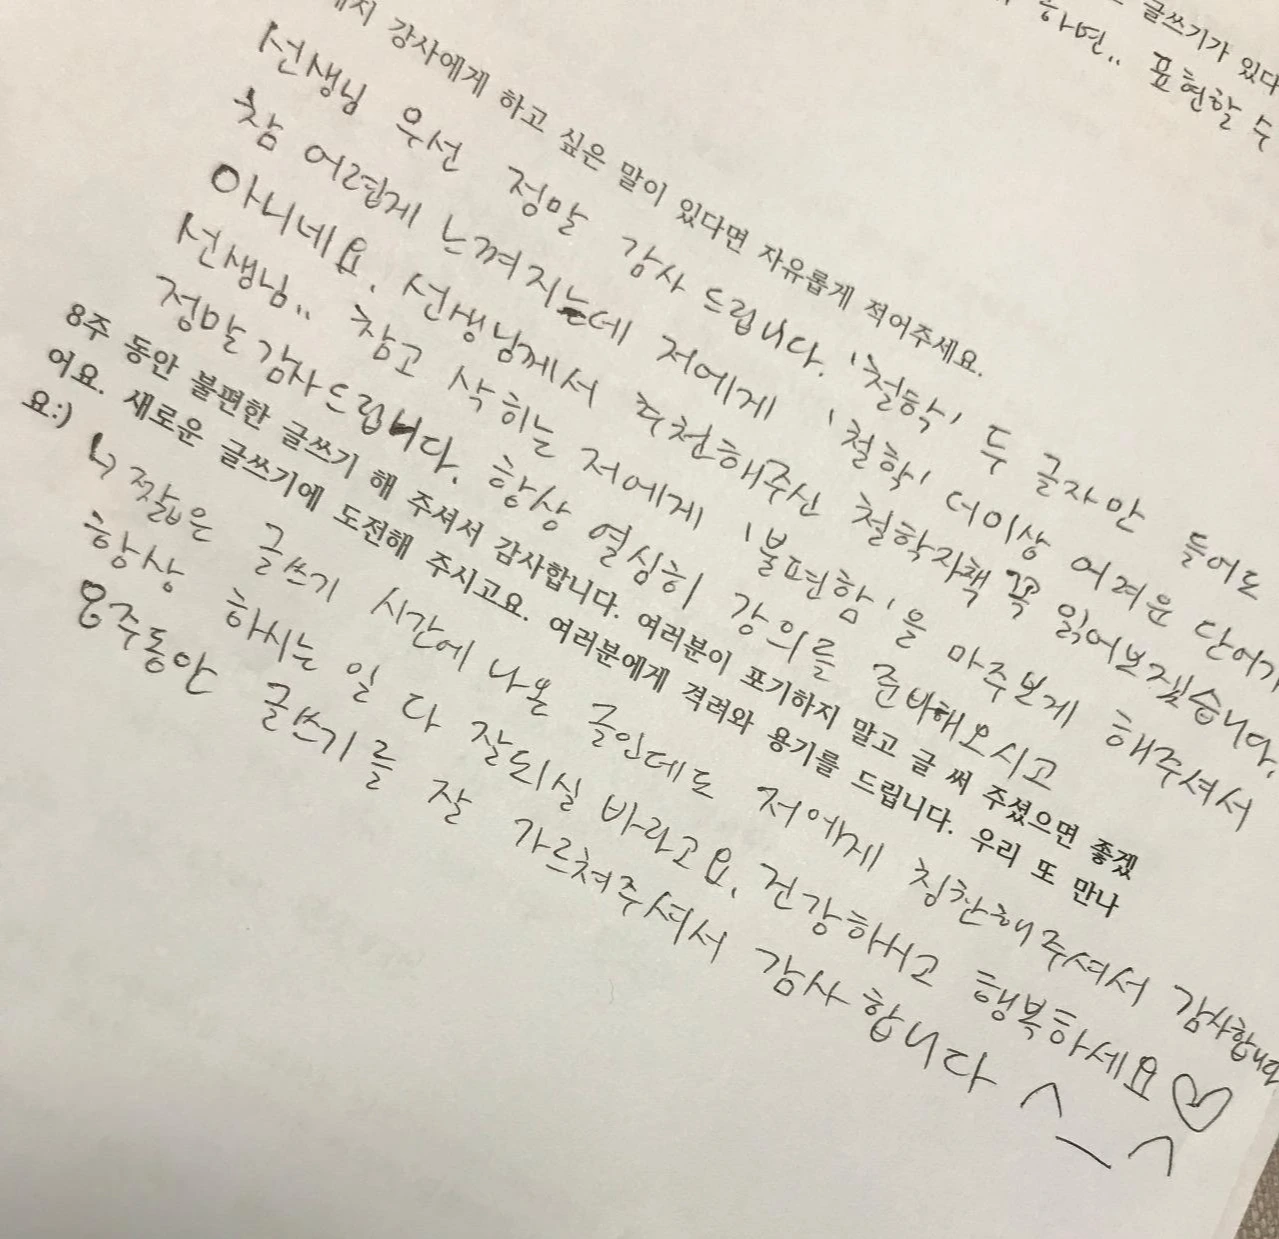 글쓰기가 있다
하면.. 표현할 수
강사에게 하고 싶은 말이 있다면 자유롭게 적어주세요.
선생님 우선 정말 감사 드립니다. '철학' 두 글자만 들어도
참 어렵게 느껴지는데 저에게 '철학' 더이상 어려운 단어가
아니네요. 선생님께서 추천해주신 철학자책 꼭 읽어보겠습니다.
선생님.. 참고 삭히는 저에게 '불편함'을 마주보게 해주셔서
정말 감사드립니다. 항상 열심히 강의를 준비해오시고
8주 동안 불편한 글쓰기 해 주셔서 감사합니다. 여러분이 포기하지 말고 글 써 주셨으면 좋겠
어요. 새로운 글쓰기에 도전해 주시고요. 여러분에게 격려와 용기를 드립니다. 우리 또 만나
요:)
짧은 글쓰기 시간에 나온 글인데도 저에게 칭찬해주셔서 감사합니다
항상 하시는 일 다 잘되실 바라고요. 건강하시고 행복하세요♡
8주동안 글쓰기를 잘 가르쳐주셔서 감사합니다 ^_^